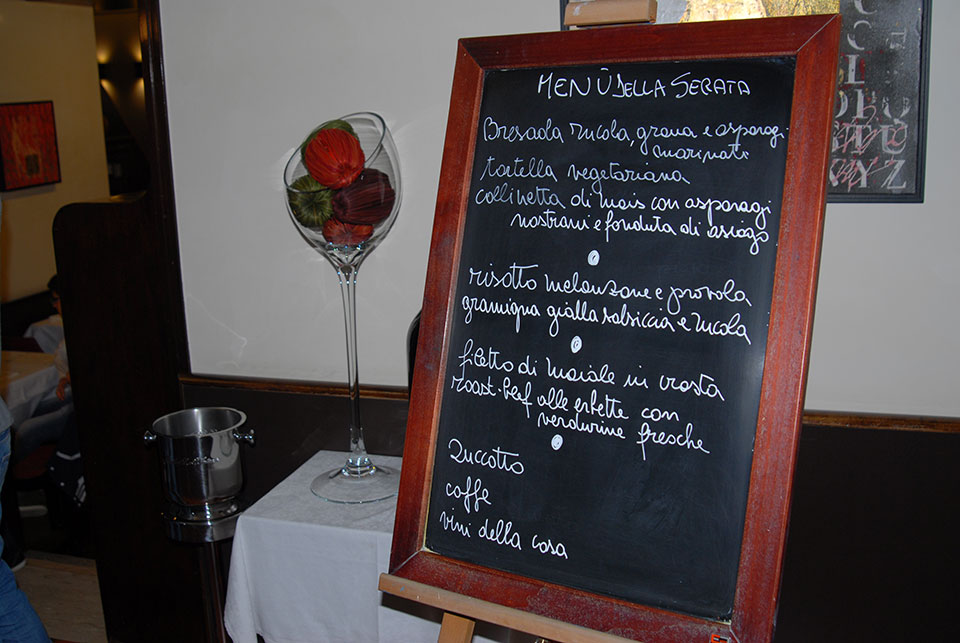 MENÙ DELLA SERATA
Bresaola rucola, grana e asparagi
marinati
tartella vegetariana
collinetta di mais con asparagi
nostrani e fonduta di asiago
risotto melanzane e provola
gramigna gialla salsiccia e rucola
filetto di maiale in crosta
roast-beef alle erbette con
verdurine fresche
Zuccotto
caffe
vini della casa